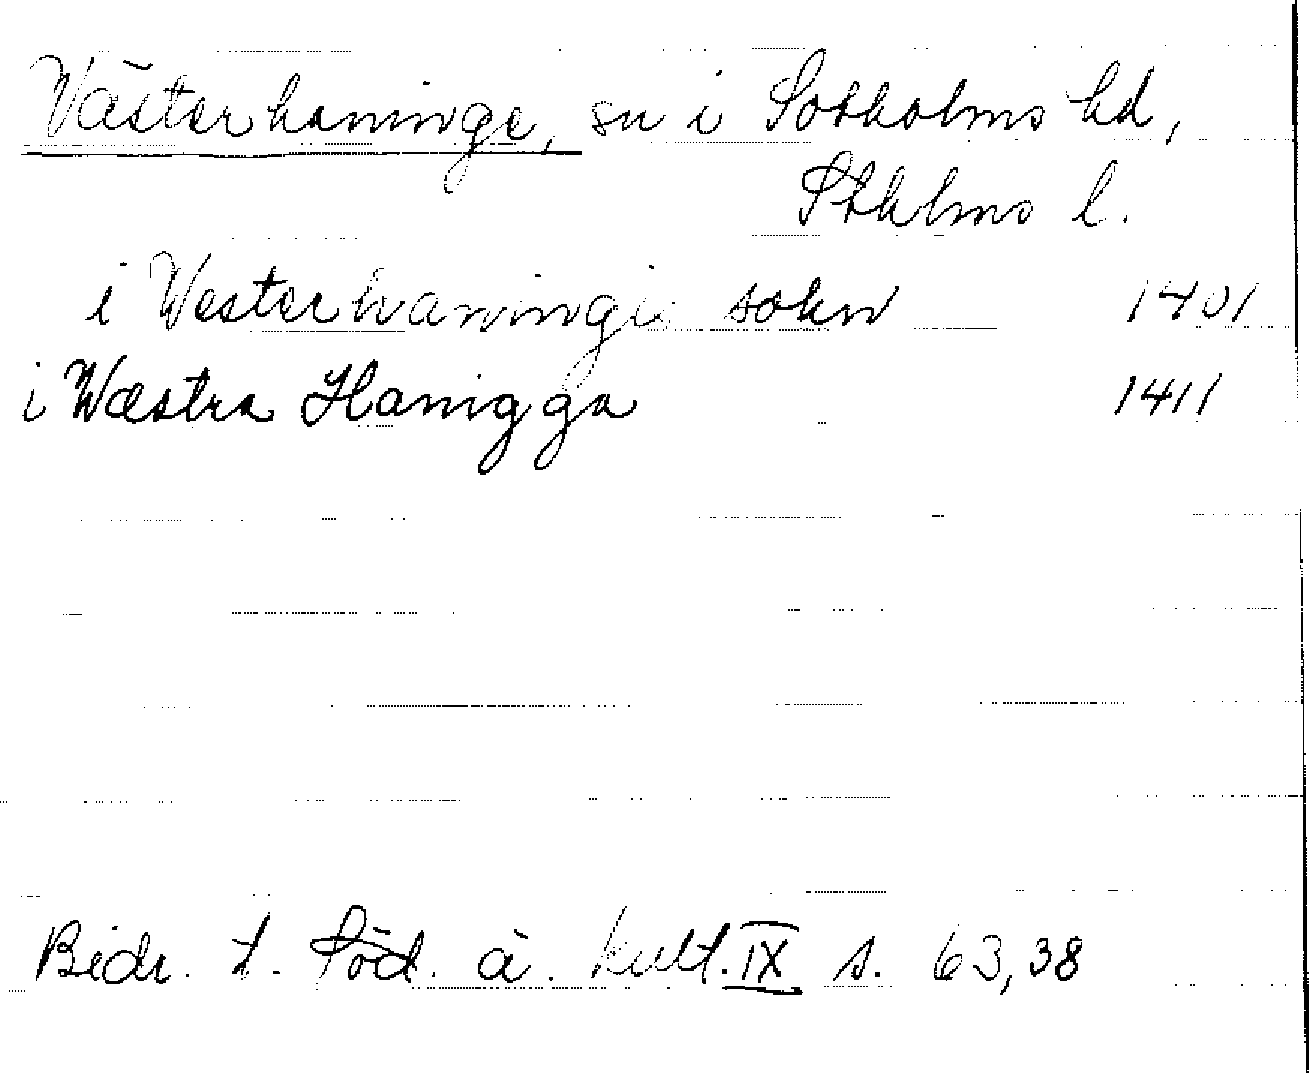 Västerhaninge, sn i Sotholms hd,
Sthlms l.
i Westerhaninge sokn 1401
i Wæstra Hanigga 1411
Bidr. t. Söd. ä. kult. IX s. 63, 38